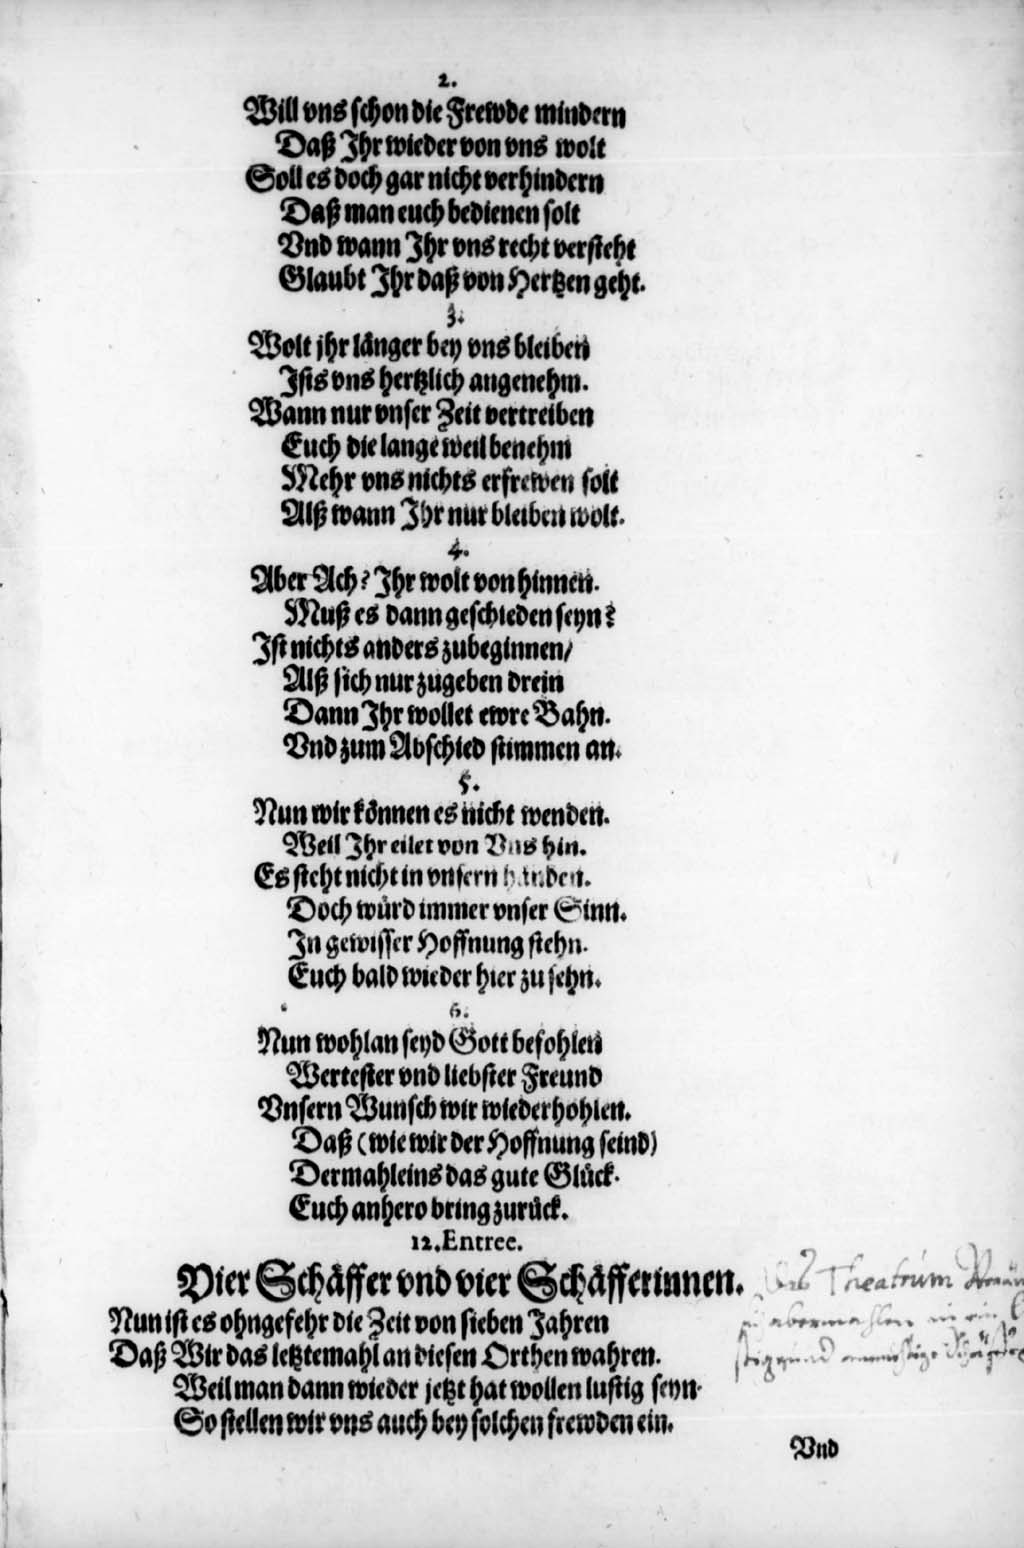 2.
Will vns schon die Frewde mindern
Daß Ihr wieder von vns wolt
Soll es doch gar nicht verhindern
Daß man euch bedienen solt
Vnd wann Ihr vns recht versteht
Glaubt Ihr daß von Hertzen geht.
3.
Wolt jhr länger bey vns bleiben
Ists vns hertzlich angenehm.
Wann nur vnser Zeit vertreiben
Euch die lange weil benehm
Mehr vns nichts erfrewen solt
Alß wann Ihr nur bleiben wolt.
4.
Aber Ach? Ihr wolt von hinnen.
Muß es dann geschieden seyn?
Ist nichts anders zubeginnen/
Alß sich nur zugeben drein
Dann Ihr wollet ewre Bahn.
Vnd zum Abschied stimmen an.
5.
Nun wir können es nicht wenden.
Weil Ihr eilet von Vns hin.
Es steht nicht in vnsern händen.
Doch würd immer vnser Sinn.
In gewisser Hoffnung stehn.
Euch bald wieder hier zu sehn.
6.
Nun wohlan seyd Gott befohlen
Wertester vnd liebster Freund
Vnsern Wunsch wir wiederhohlen.
Daß (wie wir der Hoffnung seind)
Dermahleins das gute Glück.
Euch anhero bring zurück.
12. Entree.
Vier Schäffer vnd vier Schäfferinnen.
Das Theatrum
abermahlen in ein
Nun ist es ohngefehr die Zeit von sieben Jahren
Daß Wir das letztemahl an diesen Orthen wahren.
Weil man dann wieder jetzt hat wollen lustig seyn.
So stellen wir vns auch bey solchen frewden ein.
Vnd